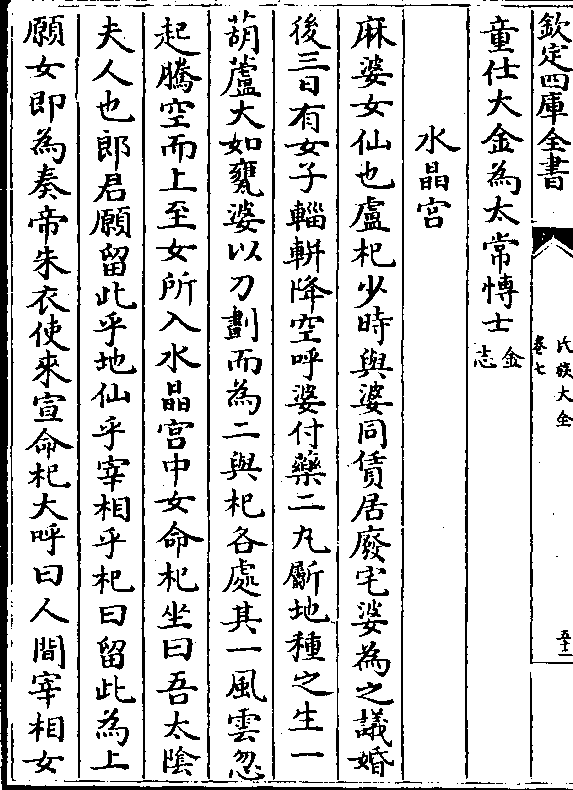 欽定四庫全書
氏族大全
卷七
五十二
童仕大金為太常愽士金志
水晶宫
麻婆女仙也盧杞少時與婆同賃居廢宅婆為之議婚
後三日有女子輜軿降空呼婆付藥二丸斸地種之生一
葫蘆大如甕婆以刀劃而為二與杞各處其一風雲忽
起騰空而上至女所入水晶宫中女命杞坐曰吾太隂
夫人也郎君願留此乎地仙乎宰相乎杞曰留此為上
願女即為奏帝朱衣使來宣命杞大呼曰人間宰相女